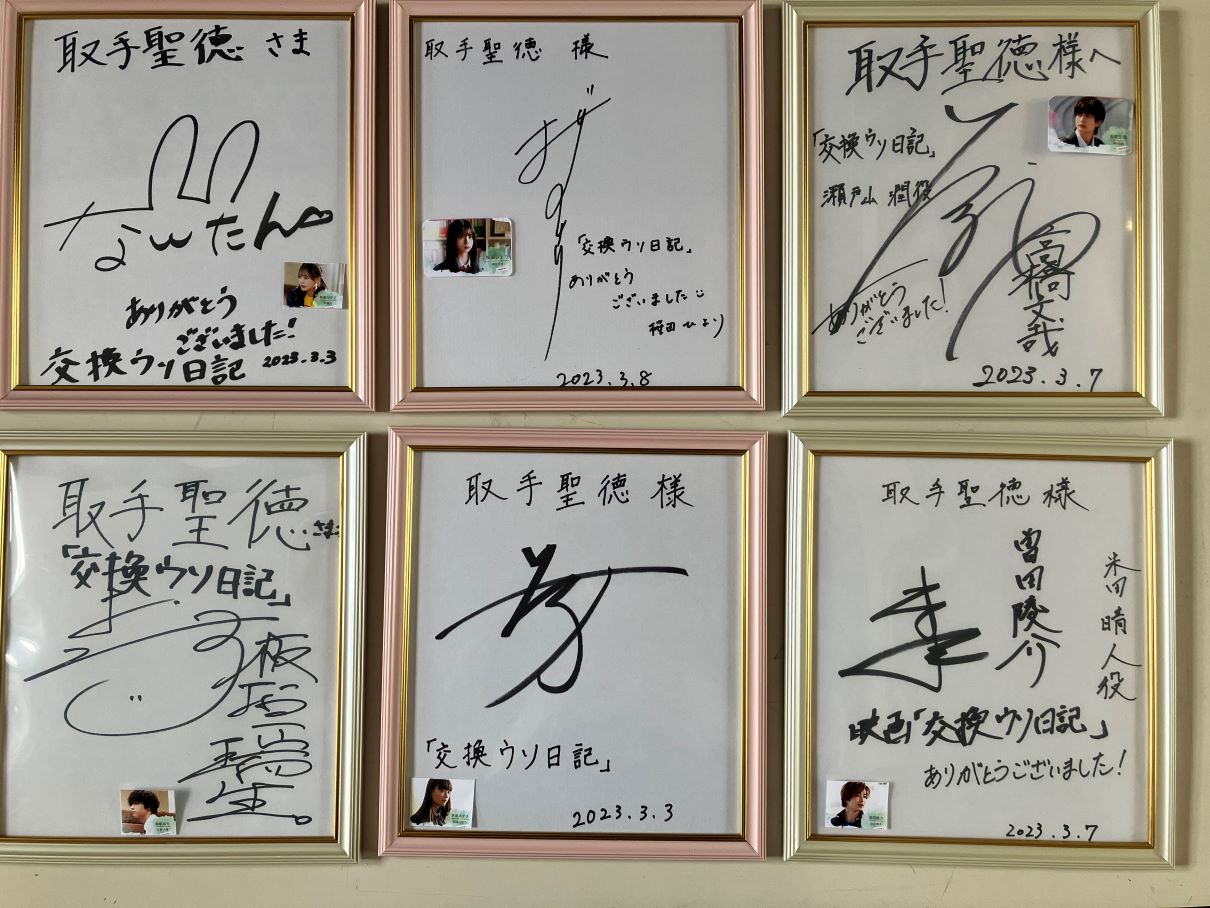 取手聖徳さま
なぁたん
ありがとう
ございました!
交換ウソ日記 2023.3.3
取手聖徳 様
「交換ウソ日記」
ありがとう
ございました
桜田ひより
2023.3.8
取手聖徳様へ
「交換ウソ日記」
瀬戸山 潤役
高橋文哉
ありがとう
ございました!
2023.3.7
取手聖徳さま
「交換ウソ日記」
板垣瑞生。
取手聖徳様
「交換ウソ日記」
2023.3.3
取手聖徳様
米田晴人役
曽田陵介
映画「交換ウソ日記」
ありがとうございました!
2023.3.7